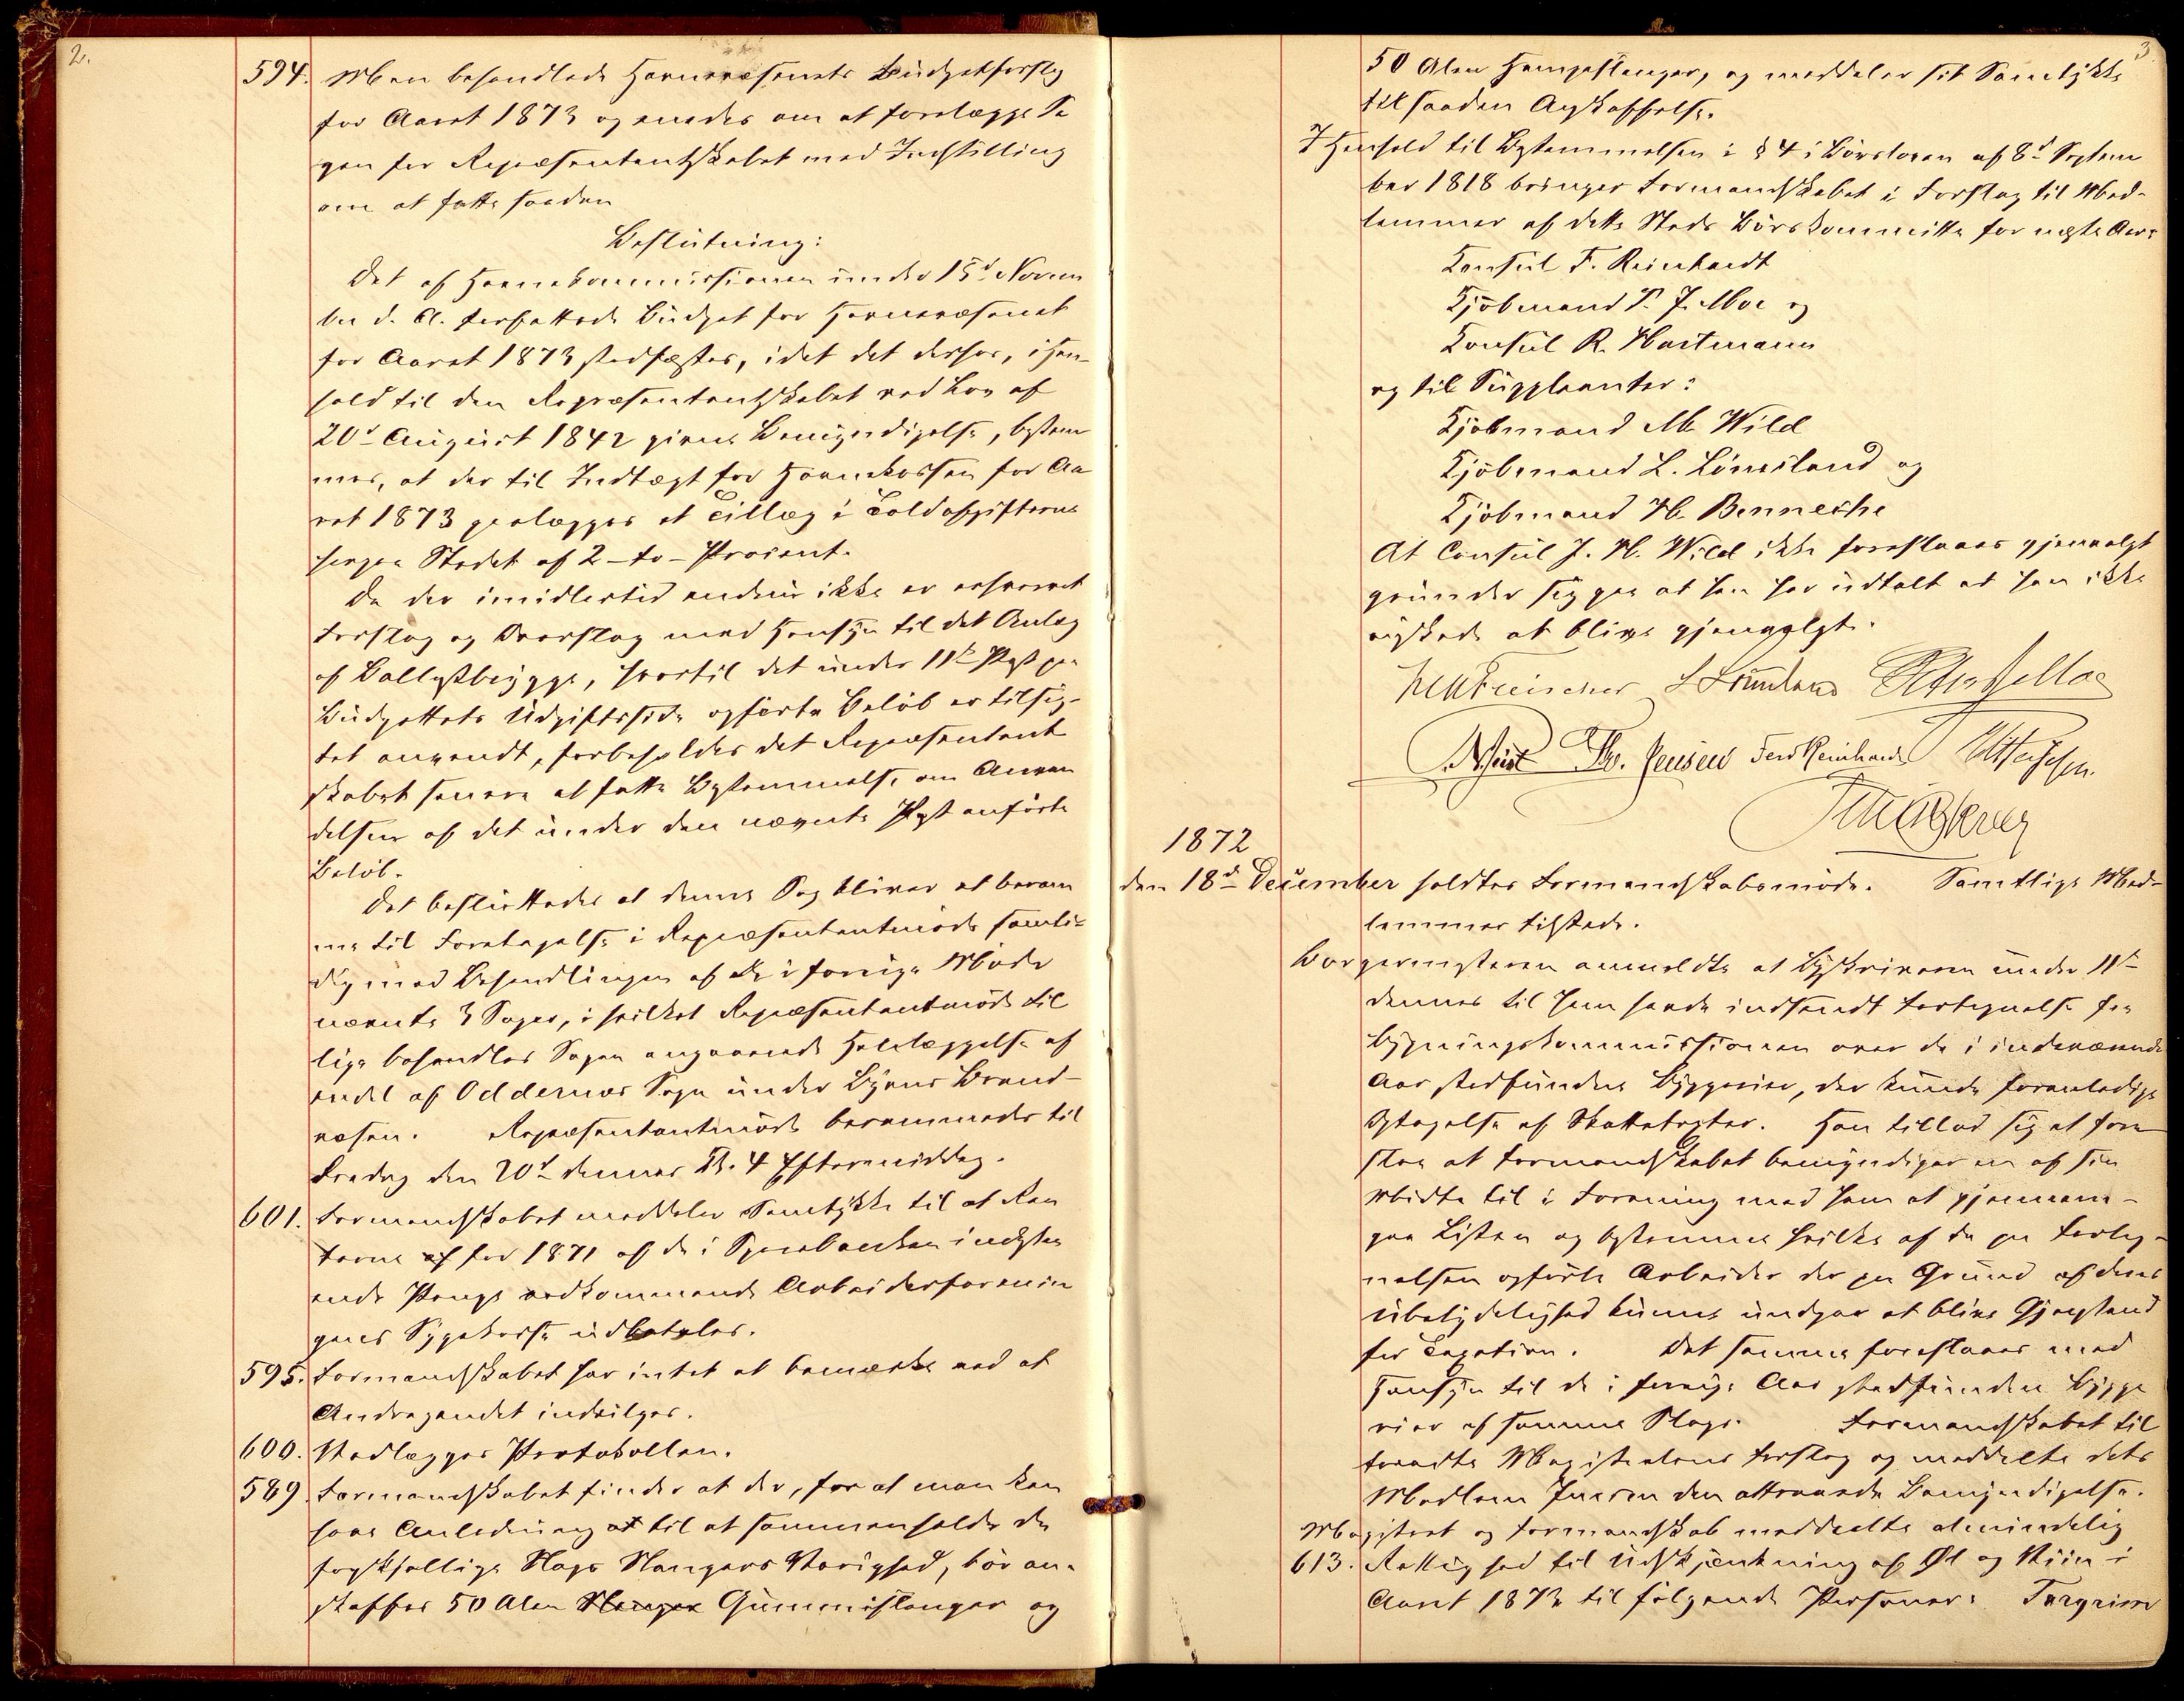 2.
594. Man behandlede Havnevæsenets Budgetforslag
for Aaret 1873 og enedes om at forelægge Sa
gen for Repræsentantskabet med Indstilling
om at fatte saadan
Beslutning:
Det af Havnekommissionen under 15d Novem
ber d. A. forfattede Budget for Havnevæsenet
for Aaret 1873 stadfæstes, idet det derhos, i Hen-
hold til den Repræsentantskabet ved Lov af
20d August 1842 givne Bemyndigelse, bestem
mes, at der til Indtægt for Havnekassen for Aa
ret 1873 paalægges et Tillæg i Toldafgifterne
her paa Stedet af 2 - to - Procent.
Da der imidlertid endnu ikke er erhvervet
Forslag og Overslag med Hensyn til det Anlæg
af Ballastbrygge, hvortil det under 11te Post paa
Budgettets Udgiftsside opførte Beløb er tilsig-
tet anvendt, forbeholdes det Repræsentant
skabet senere at fatte Bestemmelse om Anven
delsen af det under den nævnte Post anførte
Beløb.
Det besluttedes at denne Sag bliver at beram
me til Foretagelse i Repræsentantmøde samti-
dig med Behandlingen af de i forrige Møde
nævnte 3 Sager, i hvilket Repræsentantmøde til
lige behandles Sagen angaaende Henlæggelse af
endel af Oddernes Sogn under Byens Brand-
væsen. Repræsentantmøde berammedes til
Fredag den 20d dennes Kl. 4 Eftermiddag.
601. Formandskabet meddeler Samtykke til at Ren
terne af for 1871 af de i Sparebanken indestaa
ende Penge vedkommende Arbeiderforenin
gens Sygekasse udbetales.
595. Formandskabet har intet at bemærke ved at
Andragendet indvilges.
600. Vedlægges Protokollen.
589. Formandskabet finder at der, for at man kan
have Anledning at til at sammenholde de
forskjellige Slags Slangers Varighed, bør an-
skaffes 50 Alen Slanger Gummislanger og
3
50 Alen Hampeslanger, og meddeler sit Samtykke
til saadan Anskaffelse.
I Henhold til Bestemmelsen i § 4 i Børsloven af 8d Septem
ber 1818 bringer Formandskabet i Forslag til Med-
lemmer af dette Steds Børskommitte for næste Aar:
Konsul F. Reinhardt
Kjøbmand P. J. Moe og
Konsul R. Hartmann
og til Suppleanter:
Kjøbmand M. Wild
Kjøbmand L. Lømsland og
Kjøbmand H. Benneche
At Consul J. H. Wild ikke foreslaaes gjenvalgt
grunder sig paa at han har udtalt at han ikke
ønskede at blive gjenvalgt.
L Lømsland
Th. Jensen Ferd Reinhardt
1872
den 18d December holdtes Formandskabsmøde. Samtlige Med-
lemmer tilstede.
Borgermesteren anmeldte at Byskriveren under 11te
dennes til ham havde indsendt Fortegnelse fra
Bygningskommissionen over de i indeværende
Aar stedfundne Byggerier, der kunde foranledige
Optagelse af Skattetaxter. Han tillod sig at fore
slaa at Formandskabet bemyndiger en af sin
Midte til i Forening med ham at gjennem-
gaa Listen og bestemme hvilke af de paa Forteg-
nelsen opførte Arbeider der paa Grund af deres
Ubetydelighed kunne undgaa at blive Gjenstand
for Taxation. Det samme foreslaaes med
Hensyn til de i forrige Aar stedfundne Bygge
rier af samme Slags. Formandskabet til
traadte Magistratens Forslag og meddelte dets
Medlem Jensen den attraaede Bemyndigelse.
Magistrat og Formandskab meddeelte almindelig
613. Rettighed til Udskjænkning af Øl og Viin i
Aaret 1873 til følgende Personer: Torgrim